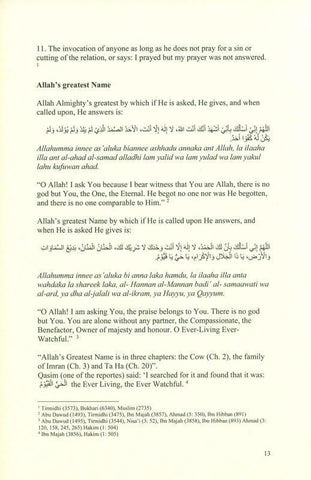 11. The invocation of anyone as long as he does not pray for a sin or
cutting of the relation, or says: I prayed but my prayer was not answered.
1
Allah's greatest Name
Allah Almighty's greatest by which if He is asked, He gives, and when
called upon, He answers is:
اللَّهُمَّ إِنِّي أَسْأَلُكَ بِأَنِّي أَشْهَدُ أَنَّكَ أَنْتَ اللهُ، لَا إِلَهَ إِلَّا أَنْتَ، الْأَحَدُ الصَّمَدُ الَّذِي لَمْ يَلِدْ وَلَمْ يُولَدْ، وَلَمْ
يَكُنْ لَهُ كُفُوًا أَحَدٌ
Allahumma innee as'aluka biannee ashhadu annaka ant Allah, la ilaaha
illa ant al-ahad al-samad alladhi lam yalid wa lam yulad wa lam yakul
lahu kufuwan ahad.
"O Allah! I ask You because I bear witness that You are Allah, there is no
god but You, the One, the Eternal. He begot no one nor was He begotten,
and there is no one comparable to Him." 2
Allah's greatest Name by which if He is called upon He answers, and
when He is asked He gives is:
اللَّهُمَّ إِنِّي أَسْأَلُكَ بِأَنَّ لَكَ الْحَمْدُ، لَا إِلَهَ إِلَّا أَنْتَ وَحْدَكَ لَا شَرِيْكَ لَكَ، الْحَنَّانُ الْمَنَّانُ، بَدِيْعَ السَّمَاوَاتِ
وَالْأَرْضِ، يَا ذَا الْجَلَالِ وَالْإِكْرَامِ، يَا حَيُّ يَا قَيُّوْمُ
Allahumma innee as'aluka bi anna laka hamdu, la ilaaha illa anta
wahdaka la shareek laka, al- Hannan al-Mannan badi' al- samaawati wa
al-ard, ya dha al-jalali wa al-ikram, ya Hayyu, ya Qayyum.
"O Allah! I am asking You, the praise belongs to You. There is no god
but You. You are alone without any partner, the Compassionate, the
Benefactor, Owner of majesty and honour. O Ever-Living Ever-
Watchful." 3
"Allah's Greatest Name is in three chapters: the Cow (Ch. 2), the family
of Imran (Ch. 3) and Ta Ha (Ch. 20)".
Qasim (one of the reportes) said: 'I searched for it and found that it was:
الْحَيُّ الْقَيُّوْمُ the Ever Living, the Ever Watchful. 4
1 Tirmidhi (3573), Bukhari (6340), Muslim (2735)
2 Abu Dawud (1493), Tirmidhi (3475), Ibn Majah (3857), Ahmad (5: 350), Ibn Hibban (891)
3 Abu Dawud (1495), Tirmidhi (3544), Nisa'i (3: 52), Ibn Majah (3858), Ibn Hibban (893) Ahmad (3:
120, 158, 245, 265) Hakim (1: 504)
4 Ibn Majah (3856), Hakim (1: 505)
13